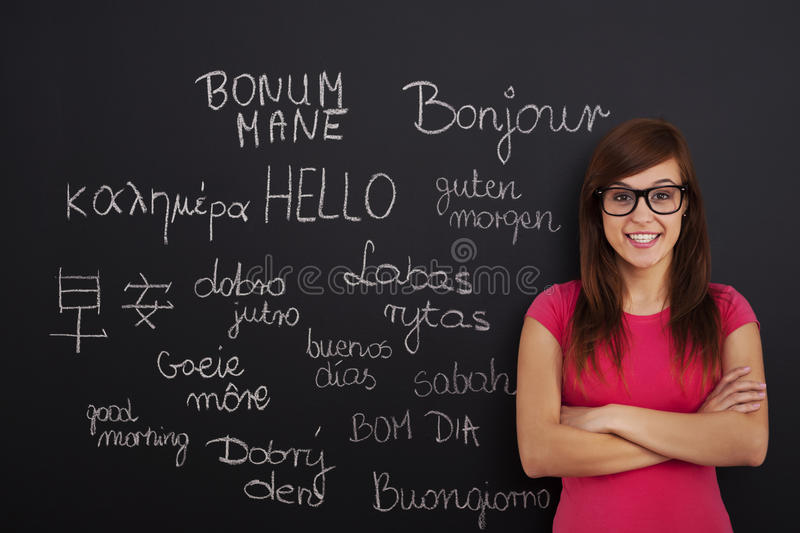 BONUM
MANE
Bonjour
καλημέρα
HELLO
guten
morgen
早安
dobro
jutro
Labas
rytas
Goeie
môre
buenos
días
sabah
good
morning
BOM DIA
Dobrý
den
Buongiorno
dreamstime